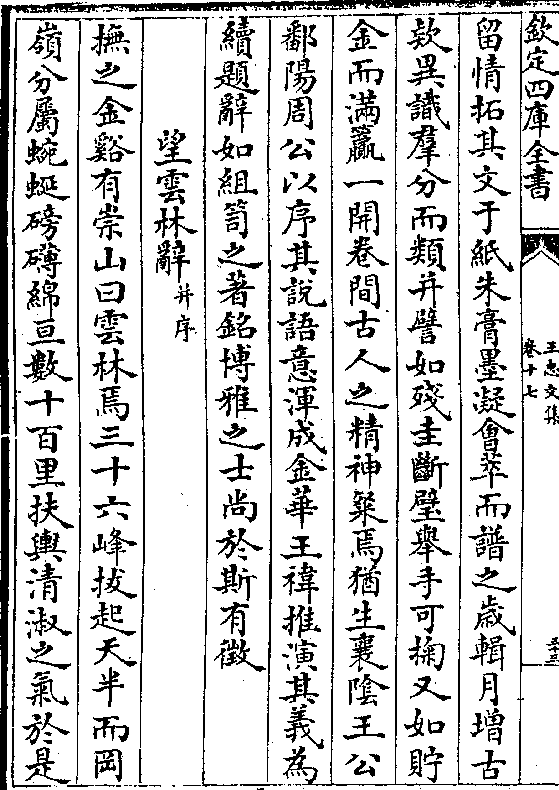 欽定四庫全書
王忠文集
卷十七
留情拓其文于紙朱膏墨凝會萃而譜之歳輯月增古
欵異識羣分而類并譬如殘圭斷璧舉手可掬又如貯
金而滿籯一開卷間古人之精神粲焉猶生襄陰王公
鄱陽周公以序其說語意渾成金華王禕推演其義為
續題辭如組笥之著銘博雅之士尚於斯有徵
望雲林辭并序
撫之金谿有崇山曰雲林焉三十六峰拔起天半而岡
嶺分屬蜿蜒磅礴綿亘數十百里扶輿清淑之氣於是